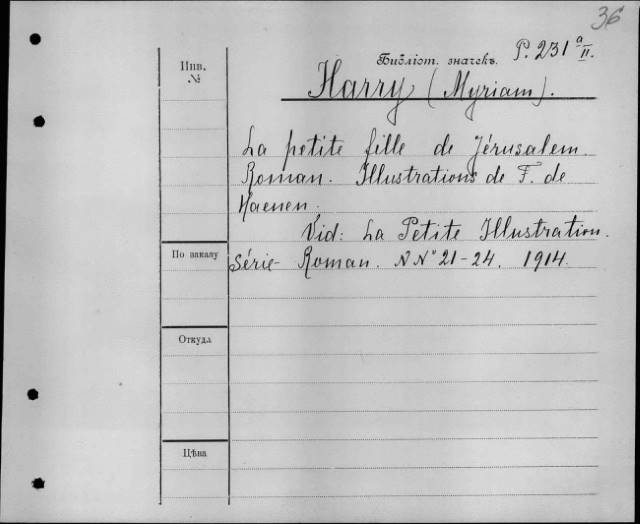 36
Библіот. значекъ. P. 231 a/II.
Инв.
№
Harry (Myriam).
La petite fille de Jérusalem.
Roman. Illustrations de F. de
Haenen.
Vid: La Petite Illustration.
По заказу
Série- Roman. NN° 21-24. 1914.
Откуда
Цѣна